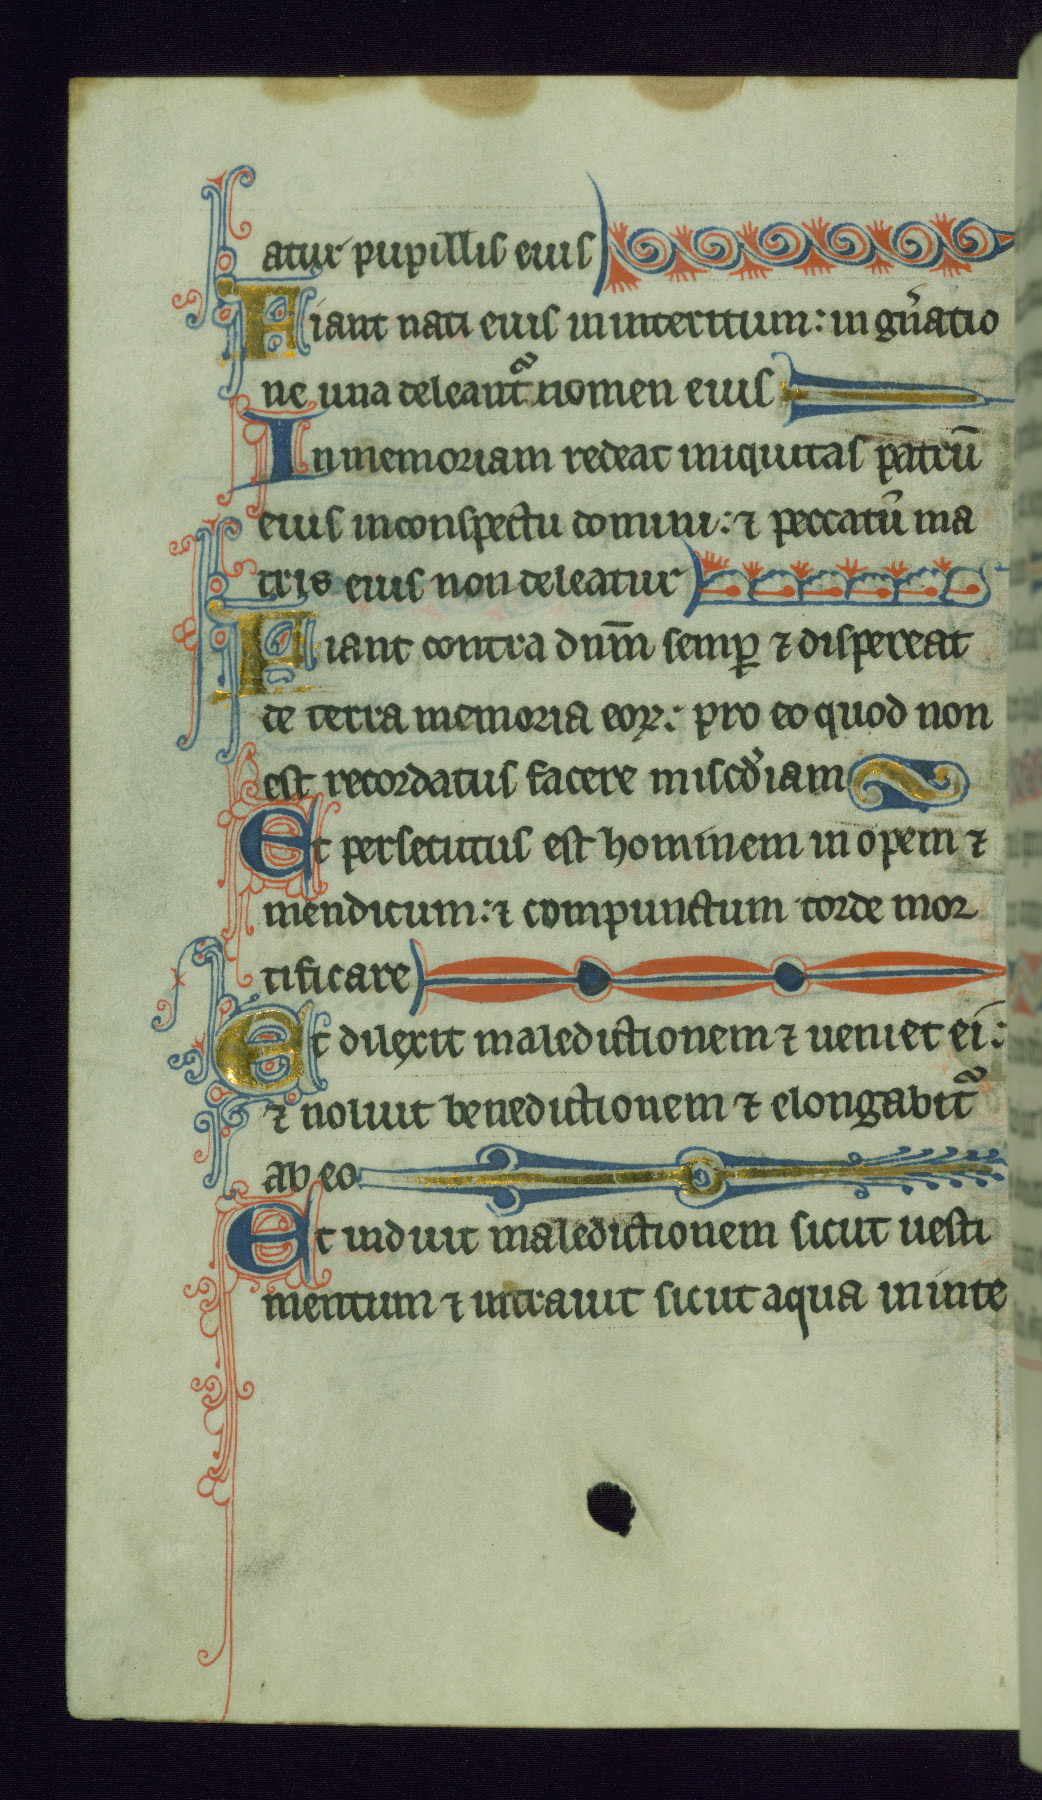 atur pupillis eius
Fiant nati eius in interitum: in gn̄atio
ne una deleant᷑ nomen eius
In memoriam redeat iniquitas patrū
eius in conspectu domini: ⁊ peccatū ma
tris eius non deleatur
Fiant contra dn̄m semꝑ ⁊ dispereat
de terra memoria eoꝝ: pro eo quod non
est recordatus facere misc̄diam
Et persecutus est hominem inopem ⁊
mendicum: ⁊ compunctum corde mor
tificare
Et dilexit maledictionem ⁊ ueniet ei:
⁊ noluit benedictionem ⁊ elongabit᷑
ab eo
Et induit maledictionem sicut uesti
mentum ⁊ intrauit sicut aqua in inte